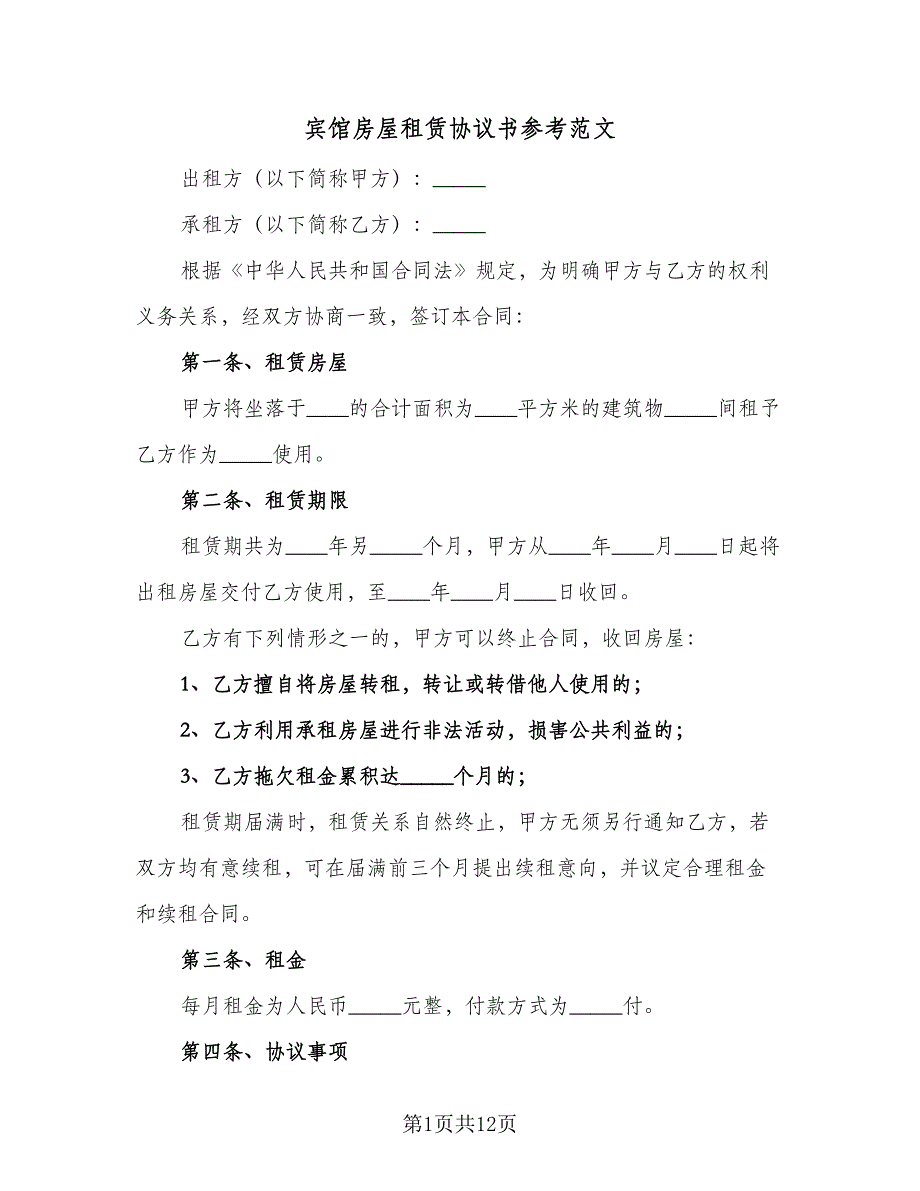 宾馆房屋租赁协议书参考范文
出租方（以下简称甲方）：_____
承租方（以下简称乙方）：_____
根据《中华人民共和国合同法》规定，为明确甲方与乙方的权利
义务关系，经双方协商一致，签订本合同：
第一条、租赁房屋
甲方将坐落于____的合计面积为____平方米的建筑物_____间租予
乙方作为_____使用。
第二条、租赁期限
租赁期共为____年另_____个月，甲方从____年____月____日起将
出租房屋交付乙方使用，至____年____月____日收回。
乙方有下列情形之一的，甲方可以终止合同，收回房屋：
1、乙方擅自将房屋转租，转让或转借他人使用的；
2、乙方利用承租房屋进行非法活动，损害公共利益的；
3、乙方拖欠租金累积达_____个月的；
租赁期届满时，租赁关系自然终止，甲方无须另行通知乙方，若
双方均有意续租，可在届满前三个月提出续租意向，并议定合理租金
和续租合同。
第三条、租金
每月租金为人民币_____元整，付款方式为_____付。
第四条、协议事项
第1页共12页